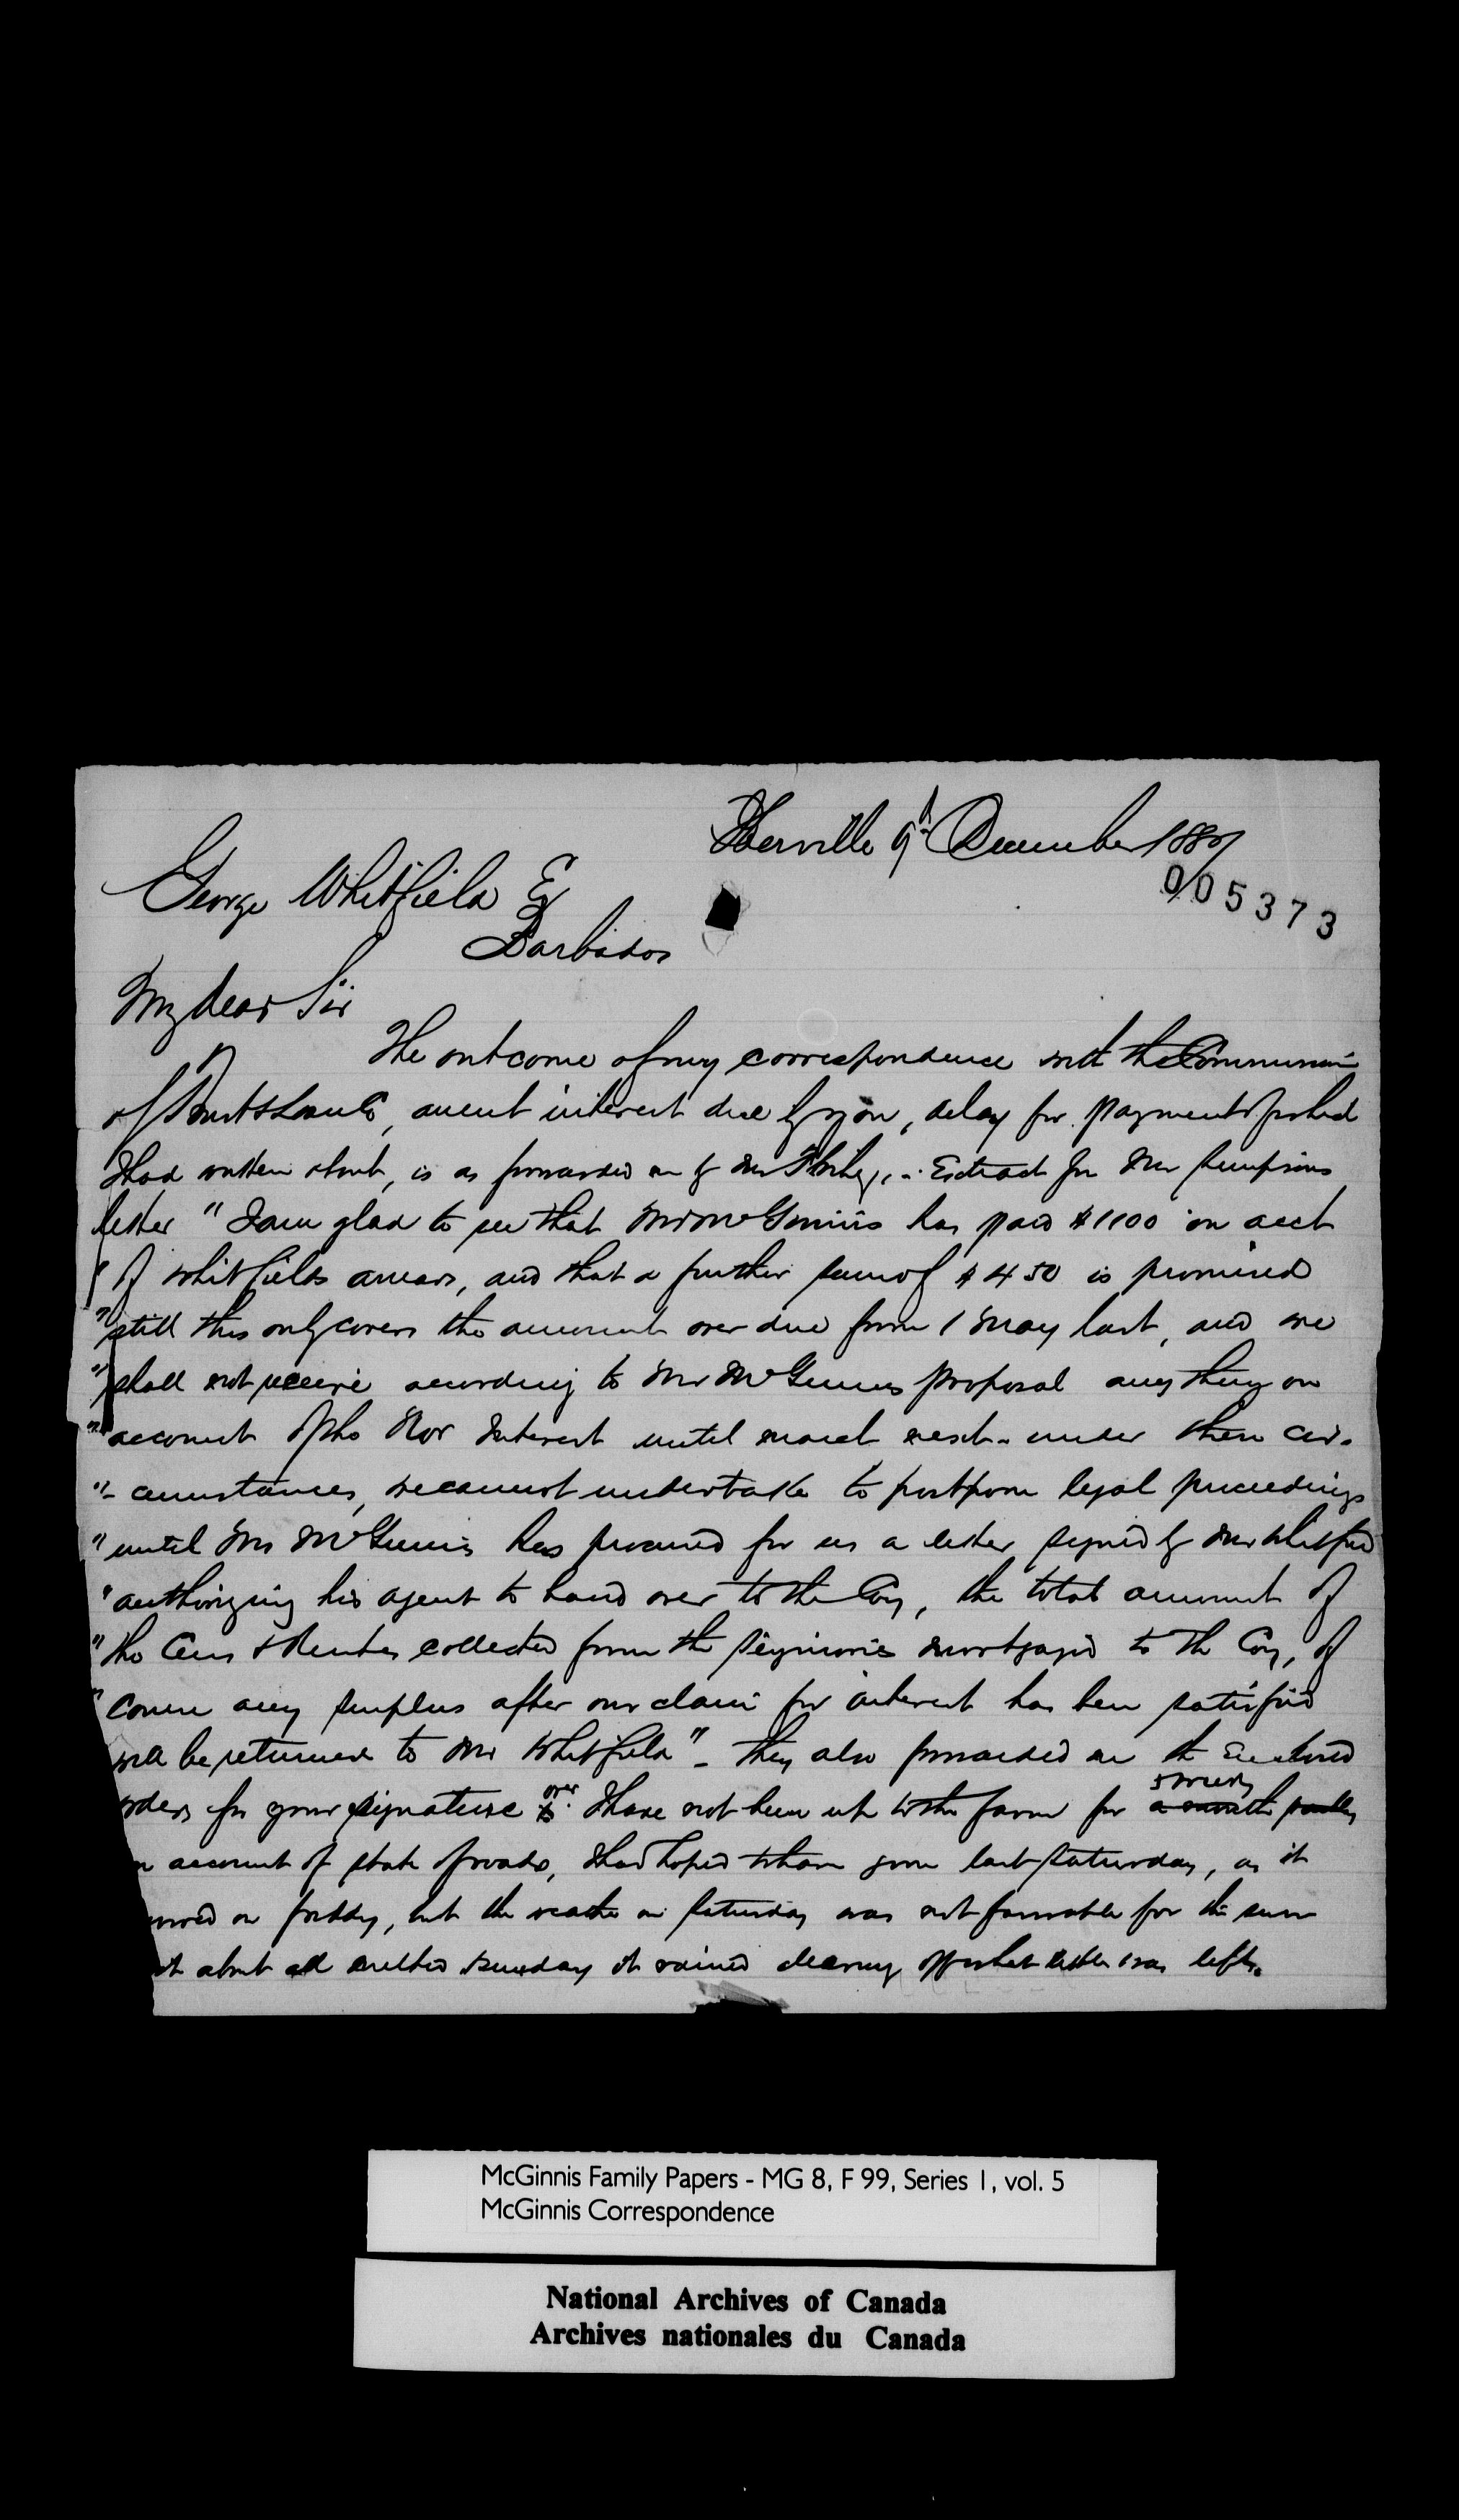 Iberville 9th December 1889
005373
George Whitfield Esq
Barbados
My Dear Sir
The outcome of my correspondence with the
of Trust & Loan Co, anent interest due by you, delay for payment of which
I had written about, is as forwarded me by Mr . Extract from Mr Simpsons
letter "I am glad to see that Mr McGinnis has paid $1100 on acct
" of Whitfields arrears, and that a further sum of $450 is promised
" still this only covers the amount over due from 1 May last, and we
" shall not receive according to Mr McGinnis proposal any thing on
" account of the Nov Interest until March next - under these cir-
"- cumstances, we cannot undertake to postpone legal proceedings
" until Mr McGinnis has procured for us a letter signed by Mr Whitfield
" authorizing his agent to hand over to the Coy, the total amount of
" the Cens & Rentes collected from the Seigniorie mortgaged to the Coy, of
" course any surplus after our claim for interest has been satisfied
will be returned to Mr Whitfield" - They also forwarded me the Enclosed
orders for your signature
over
I have not been up to the farm for
account of state of roads, I had hoped to have gone last Saturday, as it
on friday, but the weather on Saturday was not favorable for the snow
about all melted Sunday it rained clearing off what little was left.
McGinnis Family Papers - MG 8, F 99, Series 1, vol. 5
McGinnis Correspondence
National Archives of Canada
Archives nationales du Canada